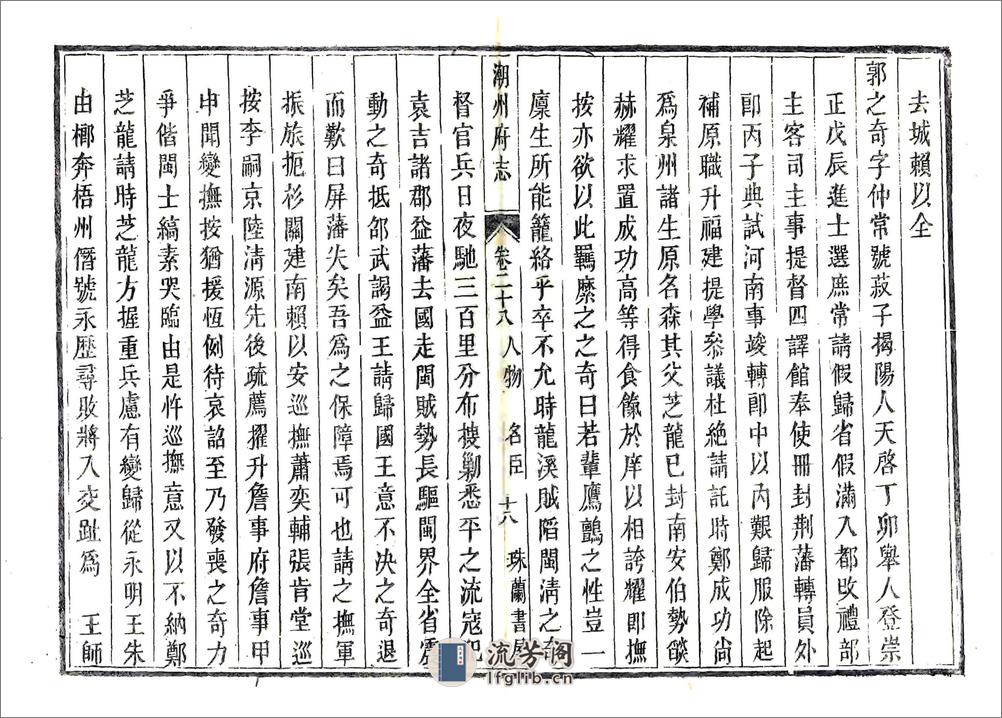 去城賴以全
郭之奇字仲常號菽子揭陽人天啓丁卯舉人登崇
正戊辰進士選庶常請假歸省假滿入都改禮部
主客司主事提督四譯館奉使冊封荆藩轉員外
郎丙子典試河南事竣轉郎中以內艱歸服除起
補原職升福建提學叅議杜絶請託時鄭成功尙
爲泉州諸生原名森其父芝龍已封南安伯勢燄
赫耀求置成功高等得食餼於庠以相誇耀即撫
按亦欲以此羈縻之之奇曰若輩鷹鸇之性豈一
廩生所能籠絡乎卒不允時龍溪賊䧟閩清之奇
督官兵日夜馳三百里分布搜勦悉平之流寇犯
袁吉諸郡益藩去國走閩賊勢長驅閩界全省震
動之奇抵邵武謁益王請歸國王意不決之奇退
而歎曰屏藩失矣吾爲之保障焉可也請之撫軍
振旅扼杉關建南賴以安巡撫蕭奕輔張肯堂巡
按李嗣京陸清源先後疏薦擢升詹事府詹事甲
申聞變撫按猶援恆例待哀詔至乃發喪之奇力
爭偕閩士縞素哭臨由是忤巡撫意又以不納鄭
芝龍請時芝龍方握重兵慮有變歸從永明王朱
由榔奔梧州僭號永歷尋敗將入交趾爲 王師
潮州府志 卷二十八 人物 名臣 十六 珠蘭書屋
流芳阁
lfglib.cn